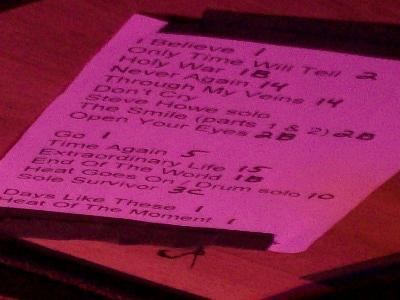 I Believe 1
Only Time Will Tell 2
Holy War 1B
Never Again 14
Through My Veins 14
Don't Cry
Steve Howe solo
The Smile (parts 1 & 2) 2B
Open Your Eyes 2B
Go 1
Time Again 5
Extraordinary Life 15
End Of The World 1B
Heat Goes On / Drum solo 10
Sole Survivor 3C
Days Like These 1
Heat Of The Moment 1